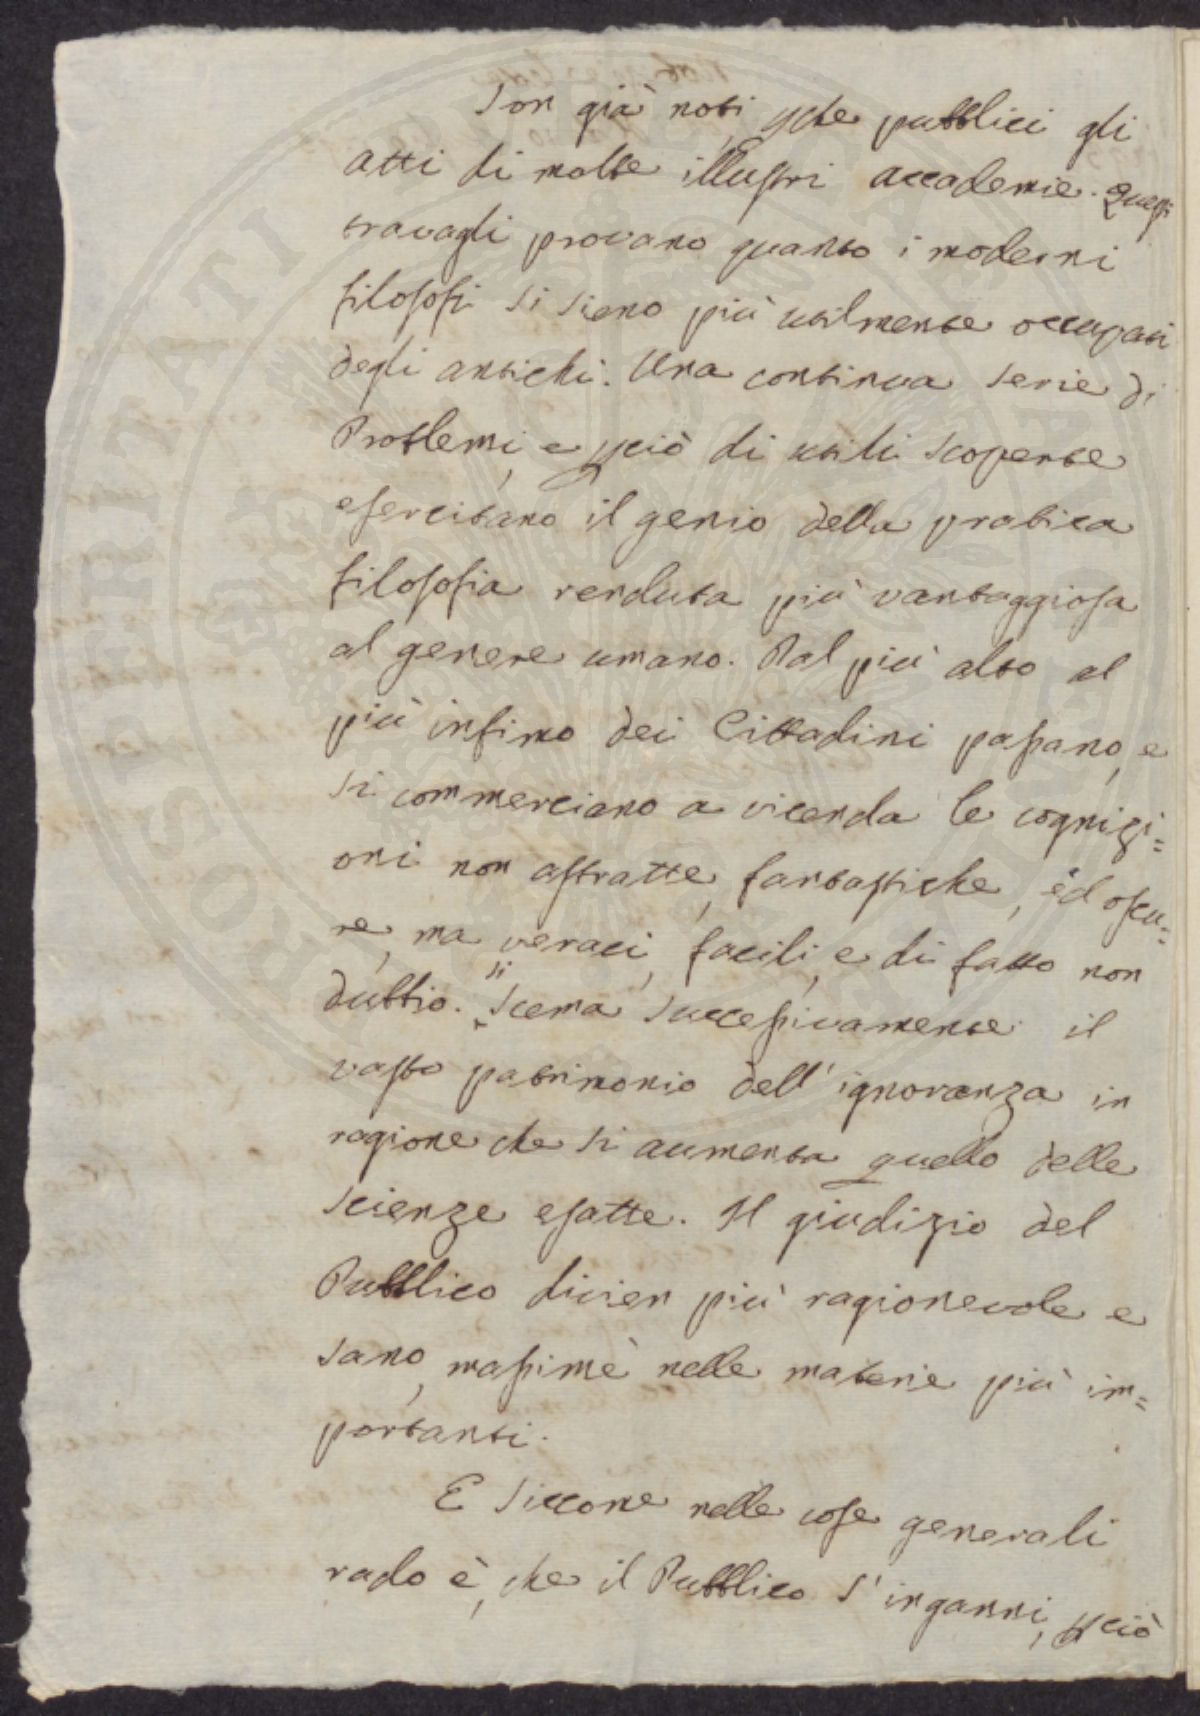 Son già noti, pche pubblici gli
atti di molte illustri accademie. Questi
travagli provano quanto i moderni
filosofi si sieno più utilmente occupati
degli antichi. Una continua serie di
Problemi, e pciò di utili scoperte
esercitano il genio della pratica
filosofia renduta più vantaggiosa
al genere umano. Dal più alto al
più infimo dei Cittadini passano, e
si commerciano a vicenda le cognizi=
oni non astratte, fantastiche, ed oscu=
re, ma veraci, facili, e di fatto non
dubbio. si Scema successivamente il
vasto patrimonio dell' ignoranza in
ragione che si aumenta quello delle
scienze esatte. Il giudizio del
Pubblico divien più ragionevole e
sano, massimè nelle materie più im=
portanti.
E siccome nelle cose generali
rado è, che il Pubblico s' inganni, pciò
PROSPERITATI PUBLICAE AUGENDAE